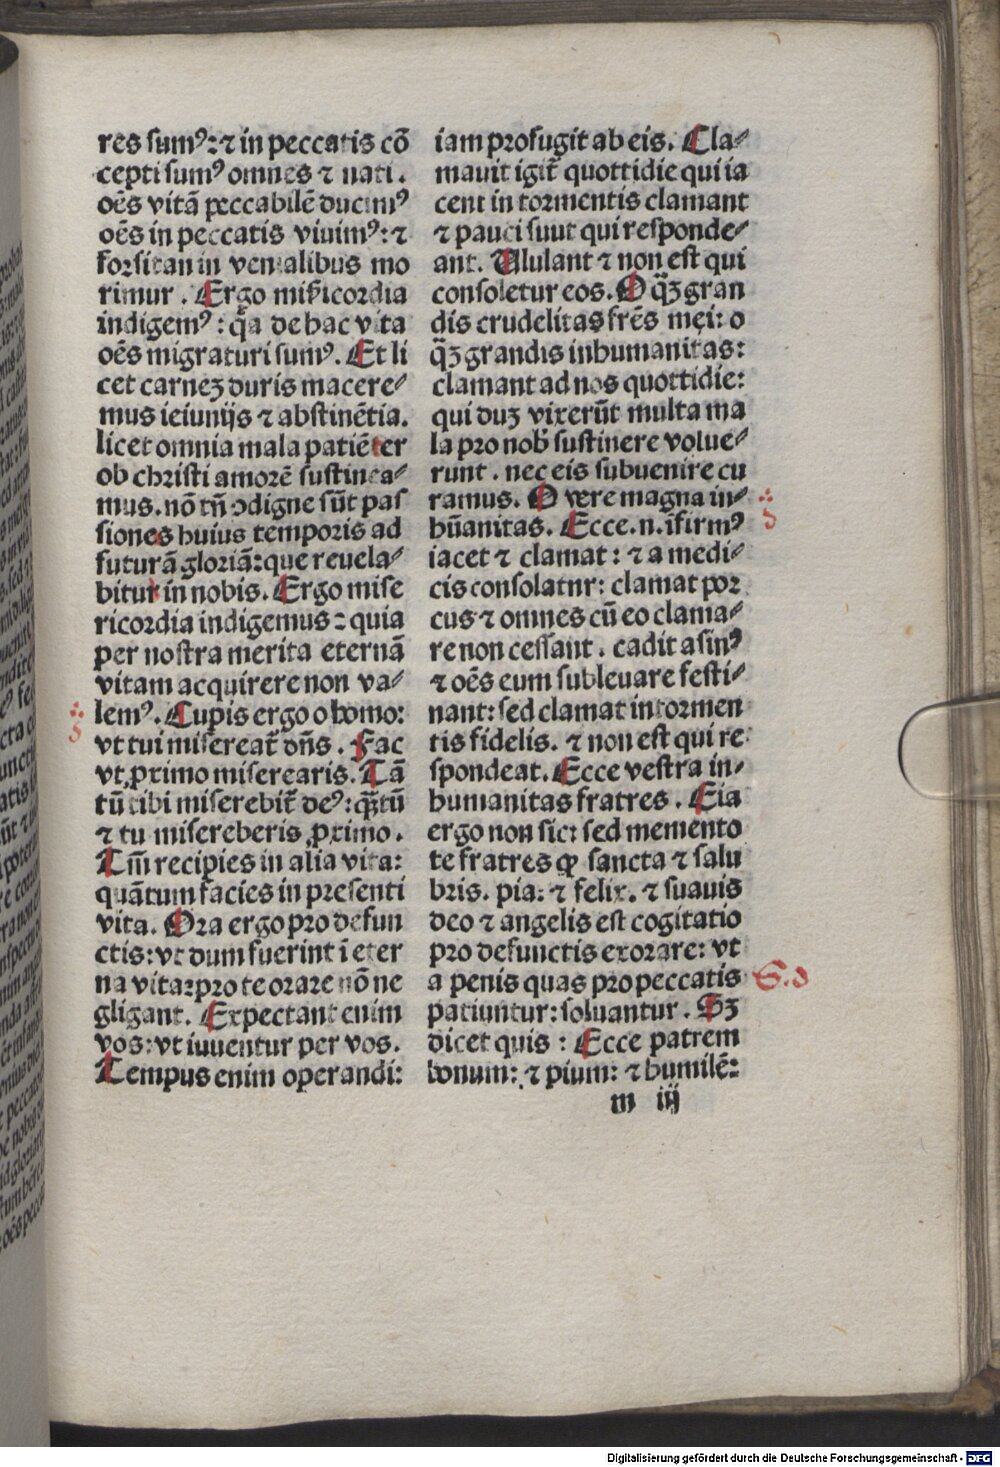 res sumꝰ: ⁊ in peccatis cō
cepti sumꝰ omnes ⁊ nati.
oēs vitā peccabilē ducimꝰ
oēs in peccatis viuimꝰ: ⁊
forsitan in venialibus mo
rimur. Ergo mi&#x017F;icordia
indigemꝰ: q̄a de hac vita
oēs migraturi sumꝰ. Et li
cet carneꝫ duris macere⸗
mus ieiunijs ⁊ abstinētia.
licet omnia mala patiēter
ob christi amorē sustinea⸗
mus. nō tn̄ ↄdigne sūt pas
siones huius temporis ad
futurā gloriā: que reuela⸗
bitur in nobis. Ergo mise
ricordia indigemus: quia
per nostra merita eternā
vitam acquirere non va⸗
lemꝰ. Cupis ergo o homo:
vt tui misereat̄ dn̄s. Fac
vt ꝓximo miserearis. Tā
tū tibi miserebit̄ deꝰ: qꝫtū
⁊ tu misereberis ꝓximo.
Tm̄ recipies in alia vita:
quātum facies in presenti
vita. Ora ergo pro defun
ctis: vt dum fuerint ī eter
na vita: pro te orare nō ne
gligant. Expectant enim
vos: vt iuuentur per vos.
Tempus enim operandi:
iam profugit ab eis. Cla⸗
mauit igit̄ quottidie qui ia
cent in tormentis clamant
⁊ pauci suut qui responde⸗
ant. Ululant ⁊ non est qui
consoletur eos. O qꝫ gran
dis crudelitas frēs mei: o
qꝫ grandis inhumanitas:
clamant ad nos quottidie:
qui duꝫ vixerūt multa ma
la pro nob̄ sustinere volue⸗
runt. nec eis subuenire cu
ramus. O vere magna in⸗
hūanitas. Ecce .n. īfirmꝰ
iacet ⁊ clamat: ⁊ a medi⸗
cis consolatnr: clamat por
cus ⁊ omnes cū eo clama⸗
re non cessant. cadit asinꝰ
⁊ oēs eum subleuare festi⸗
nant: sed clamat in tormen
tis fidelis. ⁊ non est qui re
spondeat. Ecce vestra in⸗
humanitas fratres. Eia
ergo non sic: sed memento
te fratres ꝙ sancta ⁊ salu
bris. pia: ⁊ felix. ⁊ suauis
deo ⁊ angelis est cogitatio
pro defunctis exorare: vt
a penis quas pro peccatis
patiuntur: soluantur. Sꝫ
dicet quis: Ecce patrem
bonum: ⁊ pium: ⁊ humilē:
m iij
Digitalisierung gefördert durch die Deutsche Forschungsgemeinschaft - DFG